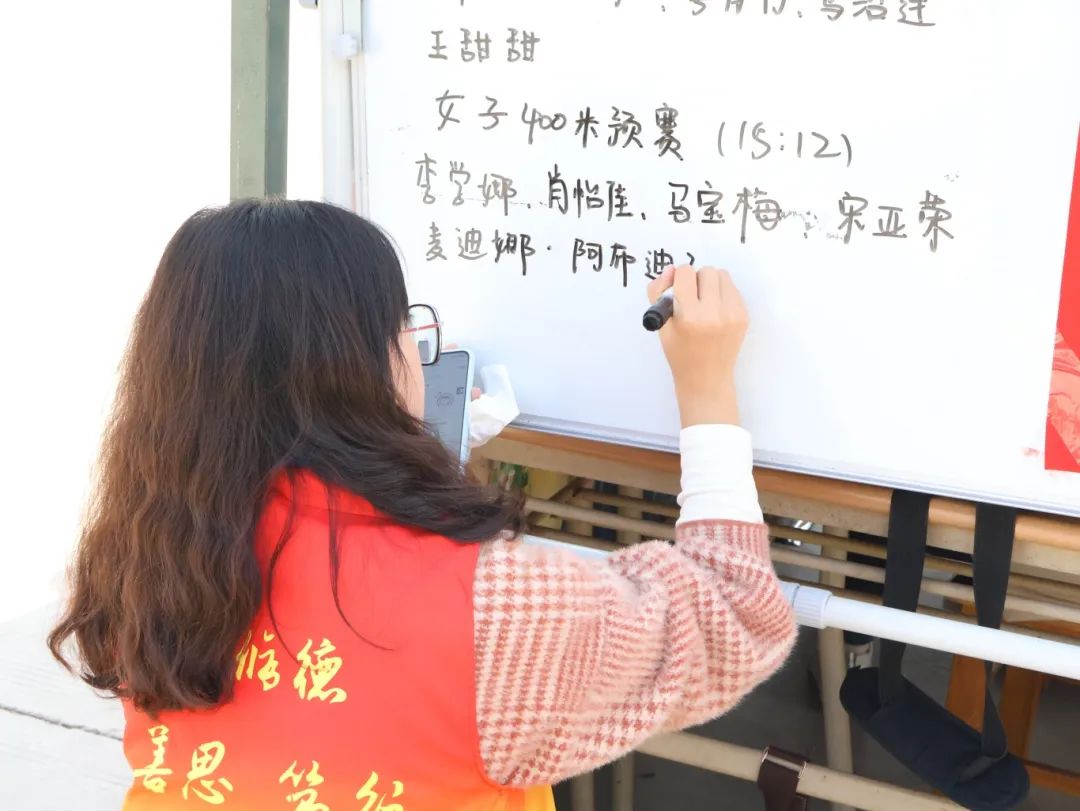 王甜甜
女子400米预赛(15:12)
李学娜、肖怡佳、马宝梅、宋亚荣
麦迪娜·阿布迪
修德
善思 笃行